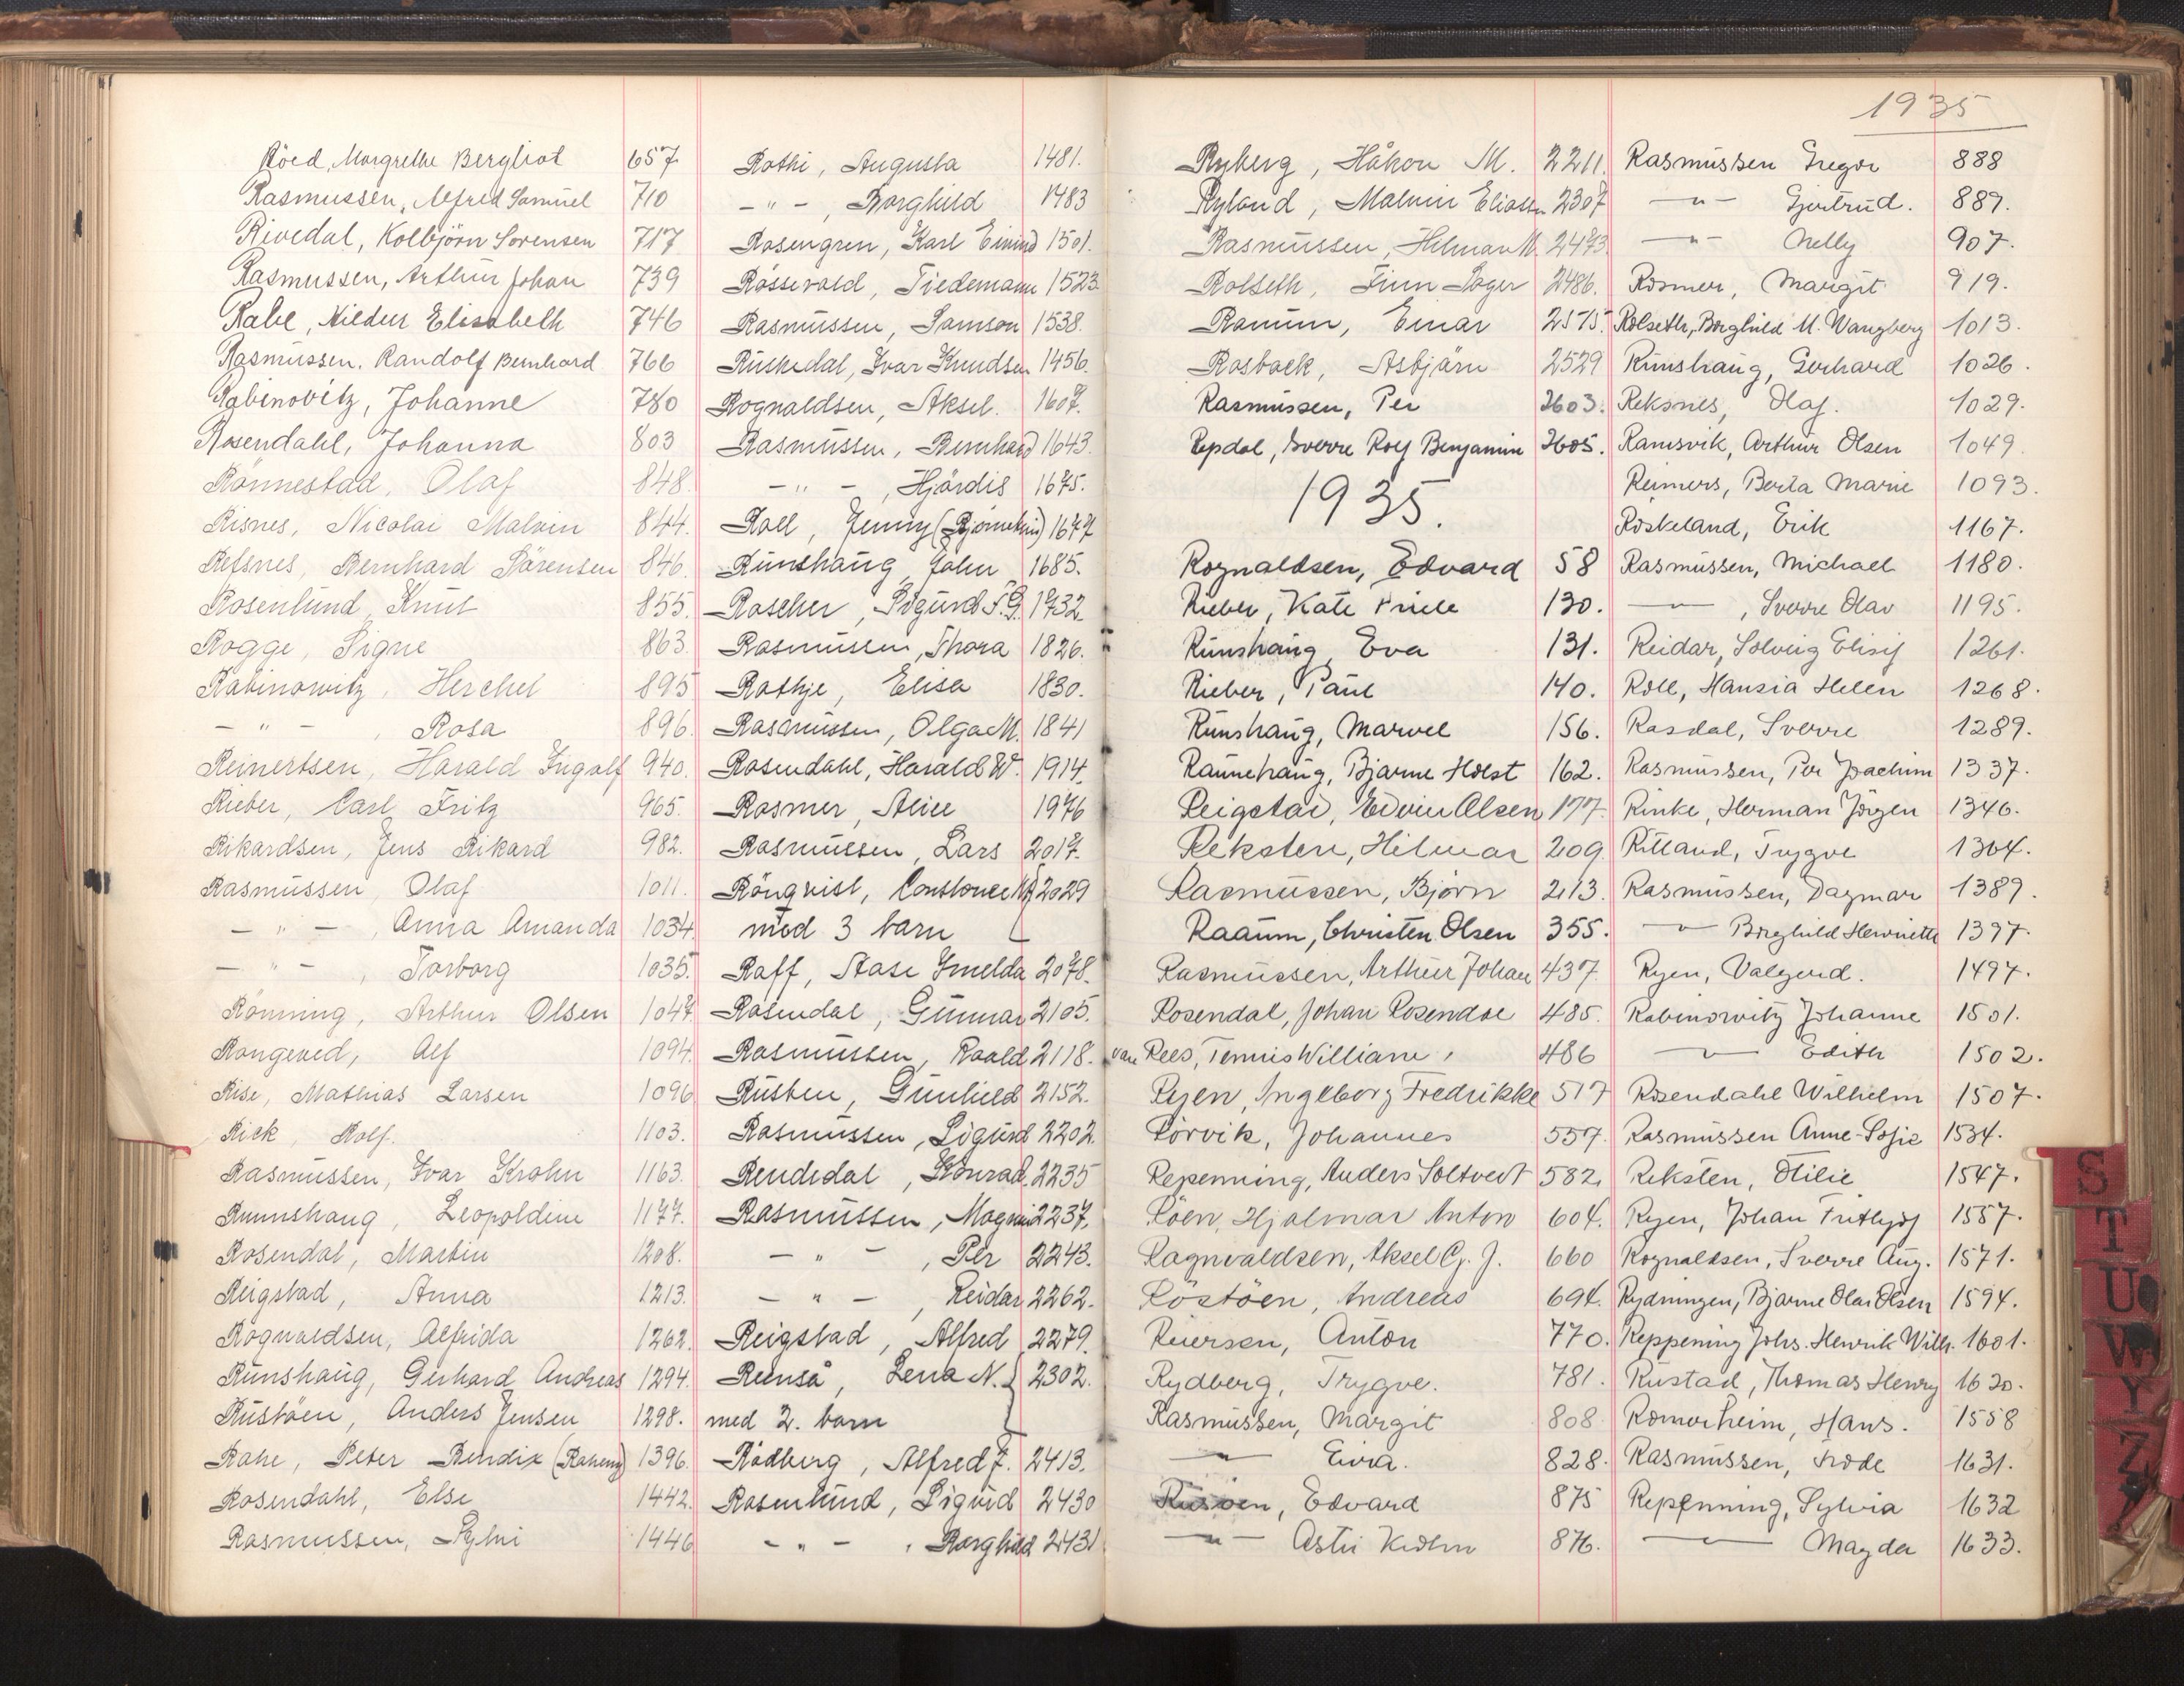 Röed, Margrethe Bergliot 657
Rasmussen, Alfred Samuel 710
Rivedal, Kolbjörn Sorensen 717
Rasmussen, Arthur Johan 739
Rabe, Elisabeth 746
Rasmussen, Randolf Bernhard 766
Rabinovitz, Johanne 780
Rosendahl, Johanna 803
Rönnestad, Olaf 848.
Risnes, Nicolai Malvin 844.
Refsnes, Bernhard Sörensen 846.
Rosenlund, Knut 855.
Rogge, Signe 863.
Rabinowitz, Herchel 895
- " - , Rosa 896.
Reinertsen, Harald Ingolf 940.
Rieber, Carl Fritz 965.
Rikardsen, Jens Rikard 982.
Rasmussen, Olaf 1011.
- " - , Anna Amanda 1034.
- " - , Torborg 1035.
Rönning, Arthur Olsen 1047.
Rongeved, Alf 1094.
Rise, Mathias Larsen 1096
Rick, Rolf. 1103.
Rasmussen, Ivar Krohn 1163.
Runnshaug, Leopoldine 1177.
Rosendal, Martin 1208.
Reigstad, Anna 1213.
Rognaldsen, Alfrida 1262.
Runshaug, Gerhard Andreas 1294.
Rustöen, Anders Jensen 1298.
Rahe, Peter Bendix 1396.
Rosendahl, Else 1442.
Rasmussen, Sylvi 1446
Rothi, Augusta 1481.
- " - , Borghild 1483
Rosengren, Karl Eivind 1501.
Rössevold, Tiedemann 1523
Rasmussen, Samson 1538.
Ruskedal, Ivar Knudsen 1456.
Rognaldsen, Aksel. 1607.
Rasmussen, Bernhard 1643.
- " - , Hjördis 1675.
Roll, Jenny 1677
Runshaug, John 1685.
Roscher, Sigurd F.G. 1732.
Rasmussen, Thora 1826.
Rothje, Elisa 1830.
Rasmussen, Olga M. 1841
Rosendahl, Harald W. 1914.
Rosmer, Alice 1976
Rasmussen, Lars 2017.
Rönqvist, Constance 2029
med 3 barn
Raff, Aase Imelda 2078.
Rosendal, Gunnar 2105.
Rasmussen, Roald 2118.
Rusten, Gunhild 2152.
Rasmussen, Sigurd 2202.
Rendedal, Konrad. 2235
Rasmussen, Magni 2237.
- " - , Per 2243.
- " - , Reidar 2262.
Reigstad, Alfred 2279.
Reinså, Lena N. 2302.
med 2. barn
Rödberg, Alfred J. 2413.
Rosenlund, Sigurd 2430
- " - , Borghild 2431
Ryberg, Håkon M. 2211.
Ryland, Malvin Eliassen 2307
Rasmussen, Hilmar M. 2473
Rolseth, Finn Roger 2486.
Ranum, Einar 2515.
Rosback, Asbjörn 2529
Rasmussen, Per 2603.
Repdal, Sverre Rolf Benjamin 2605.
1935.
Rognaldsen, Edvard 58
Rieber, Kate Friele 130.
Runshaug, Eva 131.
Rieber, Paul 140.
Runshaug, Marvel 156.
Raunehaug, Bjarne Holst 162.
Reigstad, Edvin Olsen 177.
Reksten, Hilmar 209
Rasmussen, Björn 213.
Raaum, Christen Olsen 355.
Rasmussen, Arthur Johan 437
Rosendal, Johan Rosendal 485.
van Rees, Tennis William 486
Ryen, Ingeborg Fredrikke 517
Rörvik, Johannes 557.
Repenning, Anders Soltvedt 582.
Röen, Hjalmar Anton 604.
Ragnvaldsen, Aksel G. J. 660
Röstöen, Andreas 694.
Reiersen, Anton 770.
Rydberg, Trygve. 781.
Rasmussen, Margit 808
— Eivia. 828.
Edvard 875
— " — 876.
1935
Rasmussen Gregor 888
— " — Gjertrud. 889.
— " — Nelly 907.
Rosmer, Margit 919.
Rolseth, Borghild M. Wangberg 1013.
Runshaug, Gerhard 1026.
Reksnes, Olaf. 1029.
Ramsvik, Arthur Olsen 1049.
Reimers, Berta Marie 1093.
Röskeland, Erik 1167.
Rasmussen, Michael 1180.
— " — , Sverre Olav 1195.
Reidar, Solveig Elisif 1261.
Roll, Hansia Helen 1268.
Rasdal, Sverre 1289.
Rasmussen, Per Joachim 1337.
Rinke, Herman Jörgen 1346.
Rilland, Trygve 1364.
Rasmussen, Dagmar 1389.
— " — Borghild Henriette 1397.
Ryen, Valgerd. 1497.
Rabinowitz Johanne 1501.
— " — Edith 1502.
Rosendahl Wilhelm 1507.
Rasmussen Anne-Sofie 1534.
Reksten, Otilie 1547.
Ryen, Johan Frithjof 1557.
Rognaldsen, Sverre Aug. 1571.
Rydningen, Bjarne Olav Olsen 1594.
Reppening Johs. Henrik Wilh. 1601.
Rustad, Thomas Henry 1630.
Romarheim, Hans. 1558
Rasmussen, Frode 1631.
Repenning, Sylvia 1632
— " — Magda 1633.
S
T
U
W
Y
Z